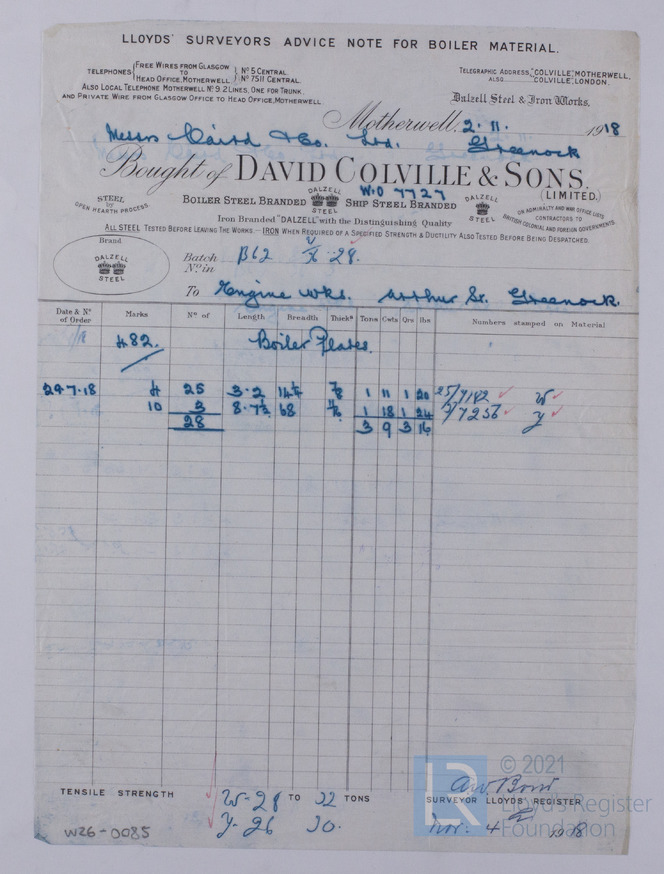 LLOYDS' SURVEYORS ADVICE NOTE FOR BOILER MATERIAL.
TELEPHONES { FREE WIRES FROM GLASGOW TO HEAD OFFICE, MOTHERWELL. } Nº 5 CENTRAL. Nº 7511 CENTRAL.
ALSO LOCAL TELEPHONE MOTHERWELL Nº 9. 2 LINES, ONE FOR TRUNK,
AND PRIVATE WIRE FROM GLASGOW OFFICE TO HEAD OFFICE, MOTHERWELL.
TELEGRAPHIC ADDRESS, "COLVILLE", MOTHERWELL,
ALSO "COLVILLE", LONDON.
Dalzell Steel & Iron Works.
Motherwell, 2. 11. 1918
Messrs Caird & Co. Ltd. Greenock
Bought of DAVID COLVILLE & SONS.
(LIMITED.)
W.O 7727
STEEL by OPEN HEARTH PROCESS.
BOILER STEEL BRANDED DALZELL STEEL SHIP STEEL BRANDED DALZELL STEEL
ON ADMIRALTY AND WAR OFFICE LISTS
CONTRACTORS TO
BRITISH COLONIAL AND FOREIGN GOVERNMENTS.
Iron Branded "DALZELL" with the Distinguishing Quality
ALL STEEL TESTED BEFORE LEAVING THE WORKS.—IRON WHEN REQUIRED OF A SPECIFIED STRENGTH & DUCTILITY ALSO TESTED BEFORE BEING DESPATCHED.
Brand
DALZELL
STEEL
Batch Nº in B62 28.
To Engine Wks. Arthur St. Greenock.
Date & Nº of Order Marks Nº of Length Breadth Thickˢ Tons Cwts Qrs lbs Numbers stamped on Material
H82. Boiler Plates.
29.7.18 H 25 3.2 7/8 1 11 1 20 25/9182 W
10 3 8.7½ 68 1 18 1 24 7256 Y
28 3 9 3 16
TENSILE STRENGTH W-28 TO 32 TONS
Y-26 30.
SURVEYOR LLOYDS' REGISTER
Nov: 4 1918
W26-0085
LR
© 2021
Lloyd's Register
Foundation